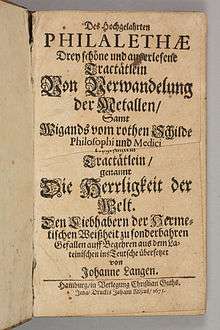 Des Hochgelahrten
PHILALETHÆ
Drey schöne und außerlesene
Tractätlein
Von Verwandelung
der Metallen/
Samt
Wigands vom rothen Schilde
Philosophi und Medici
Tractätlein/
genannt
Die Herrligkeit der
Welt.
Den Liebhabern der Herme-
tischen Weißheit zu sonderbahren
Gefallen auff Begehren aus dem La-
teinischen ins Teutsche übersetzet
von
Johanne Langen.
Hamburg/in Verlegung Christian Guths.
Johann